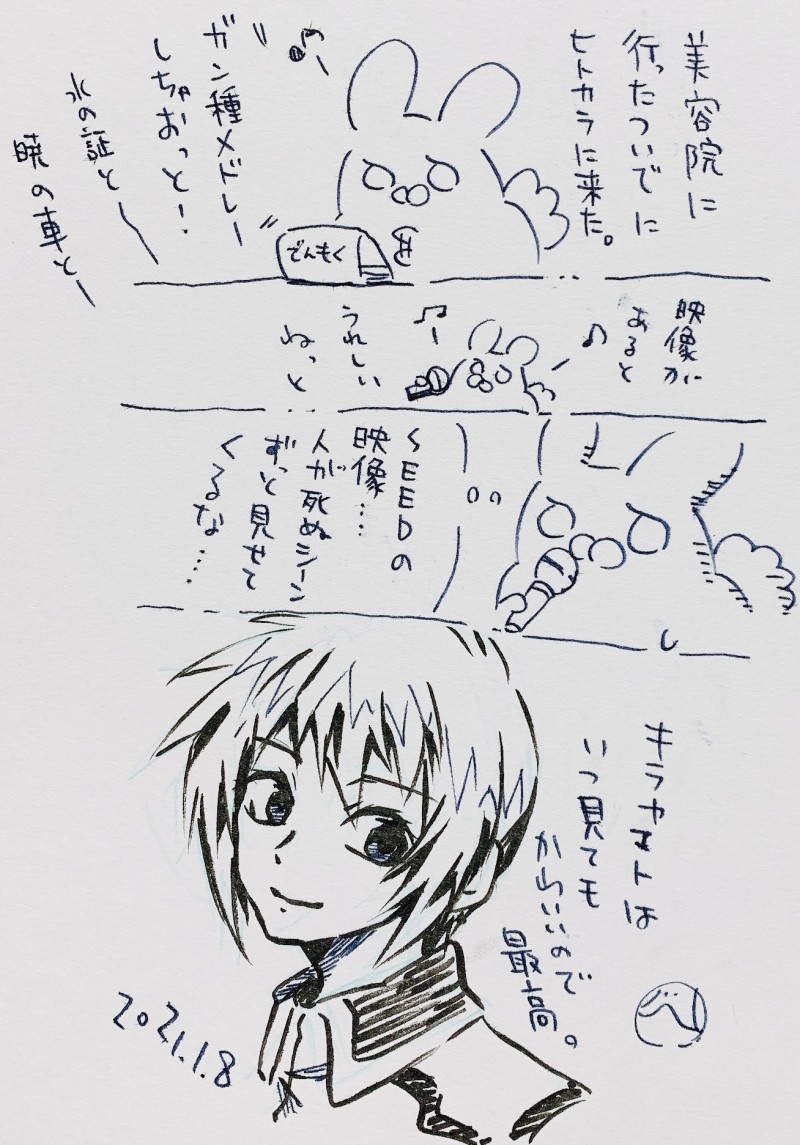 美容院に
行ったついでに
ヒトカラに来た。
ガン種メドレー
しちゃおっと!
でんもく
水の証とー
暁の車とー
映像が
あると
うれしい
ねっと
SEEDの
映像…
人が死ぬシーン
ずっと見せて
くるな…
キラヤマトは
いつ見ても
かわいいので
最高。
2021.1.8